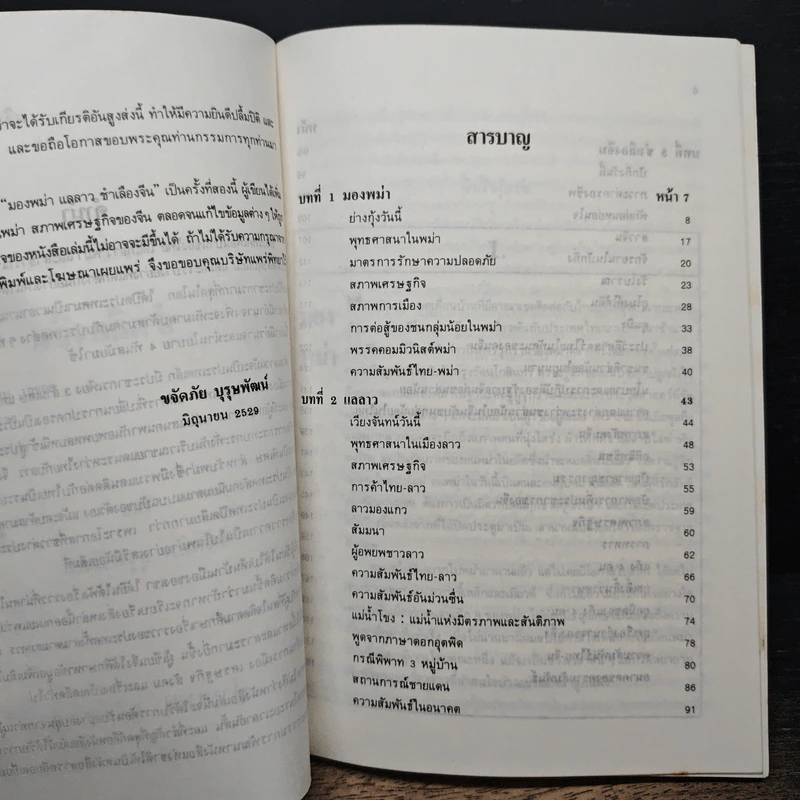 ว่าจะได้รับเกียรติอันสูงส่งนี้ ทำให้มีความยินดีปลื้มปิติ และ
และขอถือโอกาสขอบพระคุณท่านกรรมการทุกท่านมา
“มองพม่า แลลาว ชำเลืองจีน” เป็นครั้งที่สองนี้ ผู้เขียนได้เพิ่ม
พม่า สภาพเศรษฐกิจของจีน ตลอดจนแก้ไขข้อมูลต่างๆ ให้
จของหนังสือเล่มนี้ไม่อาจจะมีขึ้นได้ ถ้าไม่ได้รับความกรุณาจาก
พิมพ์และโฆษณาเผยแพร่ จึงขอขอบคุณบริษัทแพร่พิทยา
ขจัดภัย บุรุษพัฒน์
มิถุนายน 2529
สารบาญ
บทที่ 1 มองพม่า หน้า 7
ย่างกุ้งวันนี้ 8
พุทธศาสนาในพม่า 17
มาตรการรักษาความปลอดภัย 20
สภาพเศรษฐกิจ 23
สภาพการเมือง 28
การต่อสู้ของชนกลุ่มน้อยในพม่า 33
พรรคคอมมิวนิสต์พม่า 38
ความสัมพันธ์ไทย-พม่า 40
บทที่ 2 แลลาว 43
เวียงจันทน์วันนี้ 44
พุทธศาสนาในเมืองลาว 48
สภาพเศรษฐกิจ 53
การค้าไทย-ลาว 55
ลาวมองแกว 59
สัมมนา 60
ผู้อพยพชาวลาว 62
ความสัมพันธ์ไทย-ลาว 66
ความสัมพันธ์อันม่วนซื่น 70
แม่น้ำโขง : แม่น้ำแห่งมิตรภาพและสันติภาพ 74
พูดจากภาษาดอกอุตพิด 78
กรณีพิพาท 3 หมู่บ้าน 80
สถานการณ์ชายแดน 86
ความสัมพันธ์ในอนาคต 91